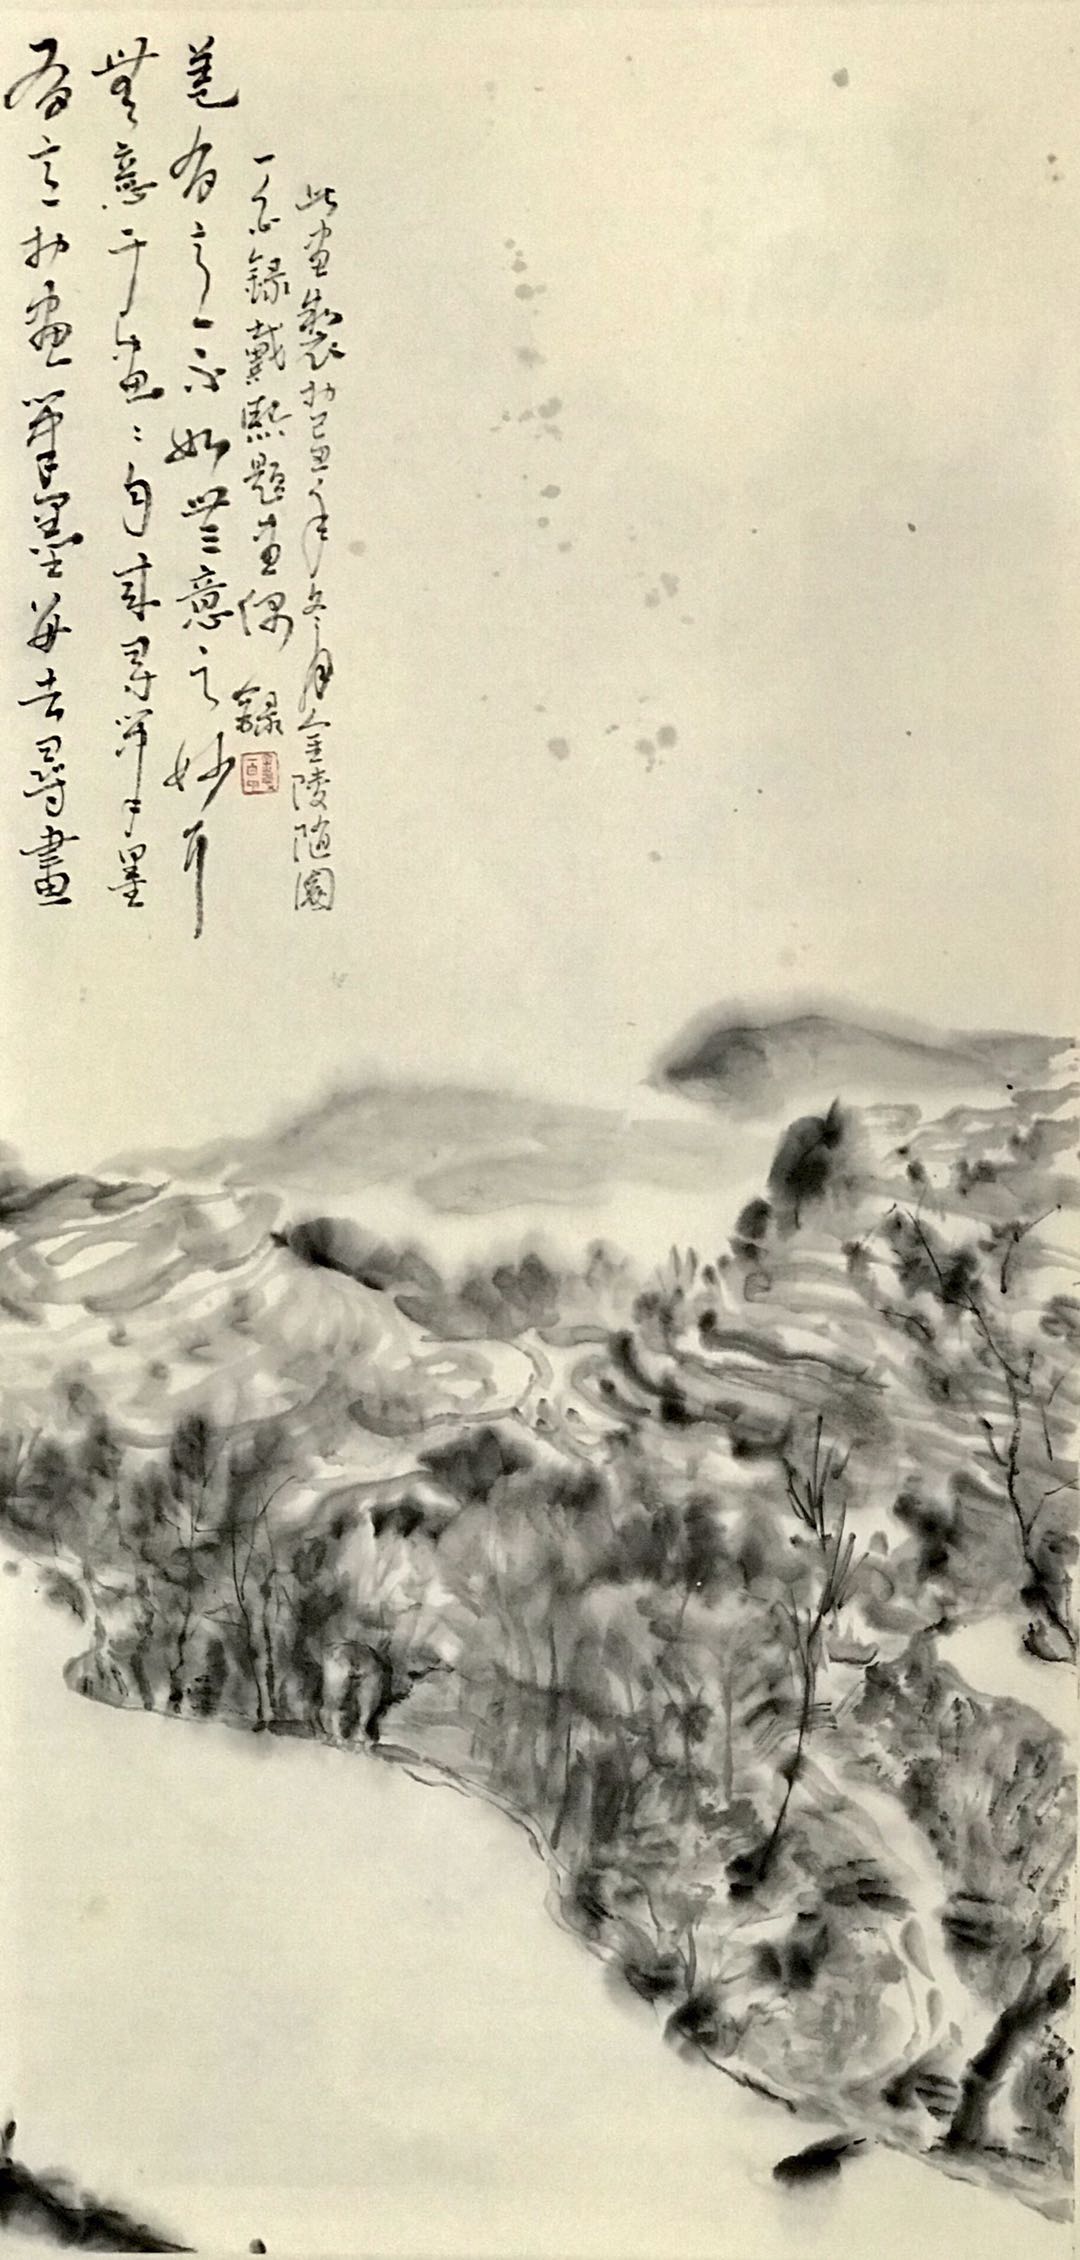 有意於畫筆墨每去尋畫
無意于畫〻自來尋筆墨
蓋有意不如無意之妙耳
一 錄戴熙題畫偶錄
此畫製於己丑年冬月金陵隨園